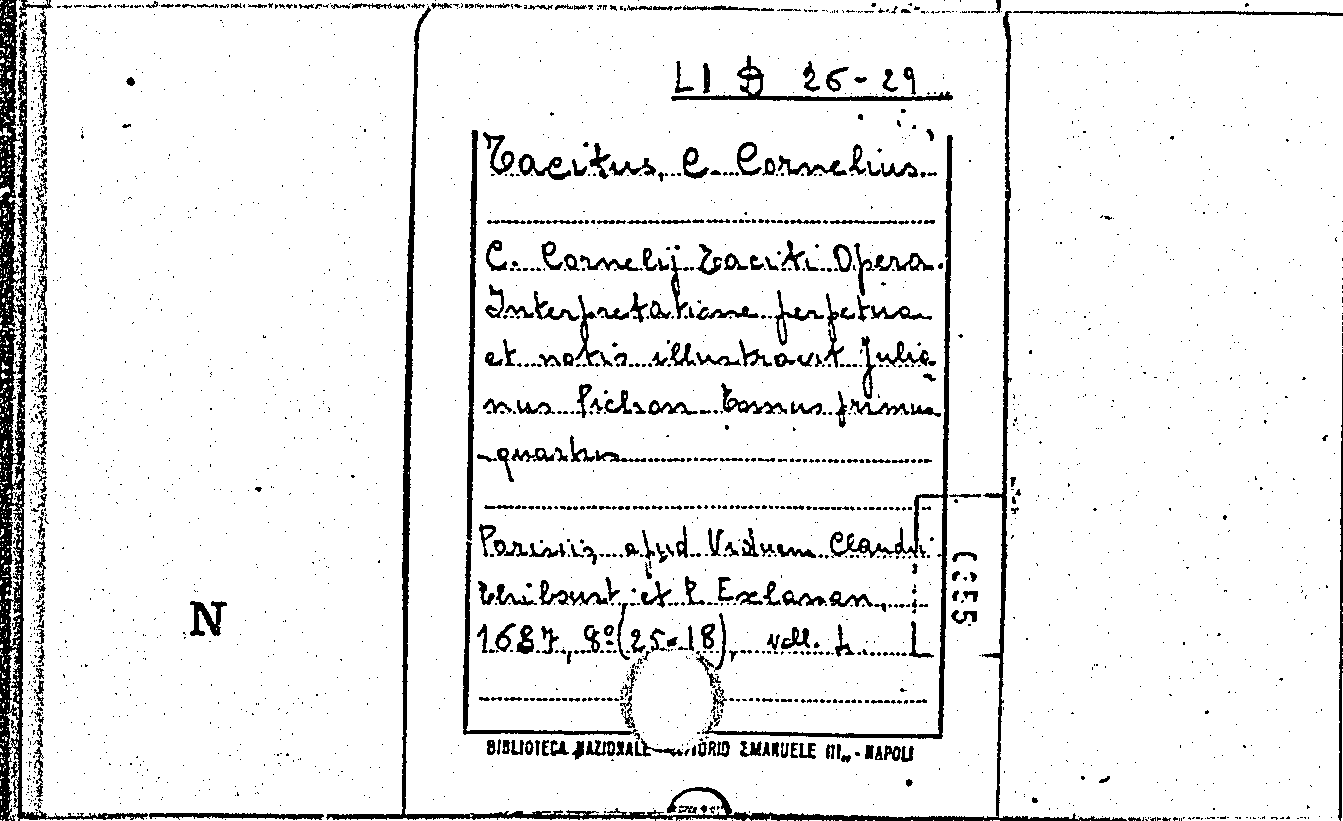 LI D 26-29
Tacitus, C. Cornelius.
C. Cornelij Taciti Opera.
Interpretatione perpetua
et notis illustravit Julia-
nus Pichon Tomus primus
-quartus
Parisiis, apud Viduam Claudii
Thiboust et P. Esclassan,
1687, 8º (25-18), voll. 4.
N
BIBLIOTECA NAZIONALE EMANUELE III„ - NAPOLI